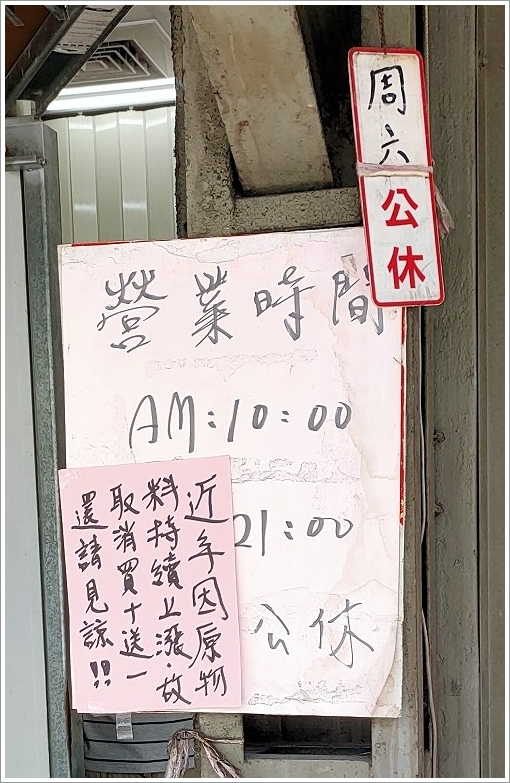 周六
公休
營業時間
AM:10:00
21:00
公休
近年因原物
料持續上漲,故
取消買十送一
還請見諒!!